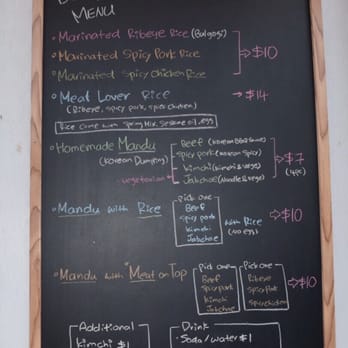 MENU
• Marinated Ribeye Rice (Bulgogi)
• Marinated Spicy Pork Rice → $10
• Marinated Spicy Chicken Rice
• Meat Lover Rice → $14
(Ribeye, spicy pork, spicy chicken)
Rice come with Spring Mix, Sesame oil, egg
• Homemade Mandu
(Korean Dumpling)
Beef (Korean BBQ Same)
Spicy pork (Korean Spicy)
kimchi (kimchi & vege)
vegetarian Jabchae (Noodle & vege)
→ $7
(4pc)
• Mandu with Rice
Pick one
Beef
Spicy pork
kimchi
Jabchae
with Rice
(No egg)
→ $10
• Mandu with "Meat on Top
Pick one
Beef
Spicy pork
kimchi
Jabchae
Pick one
Ribeye
Spicy pork
Spicy chicken
→ $10
Additional
kimchi $1
Drink
• Soda / water $1